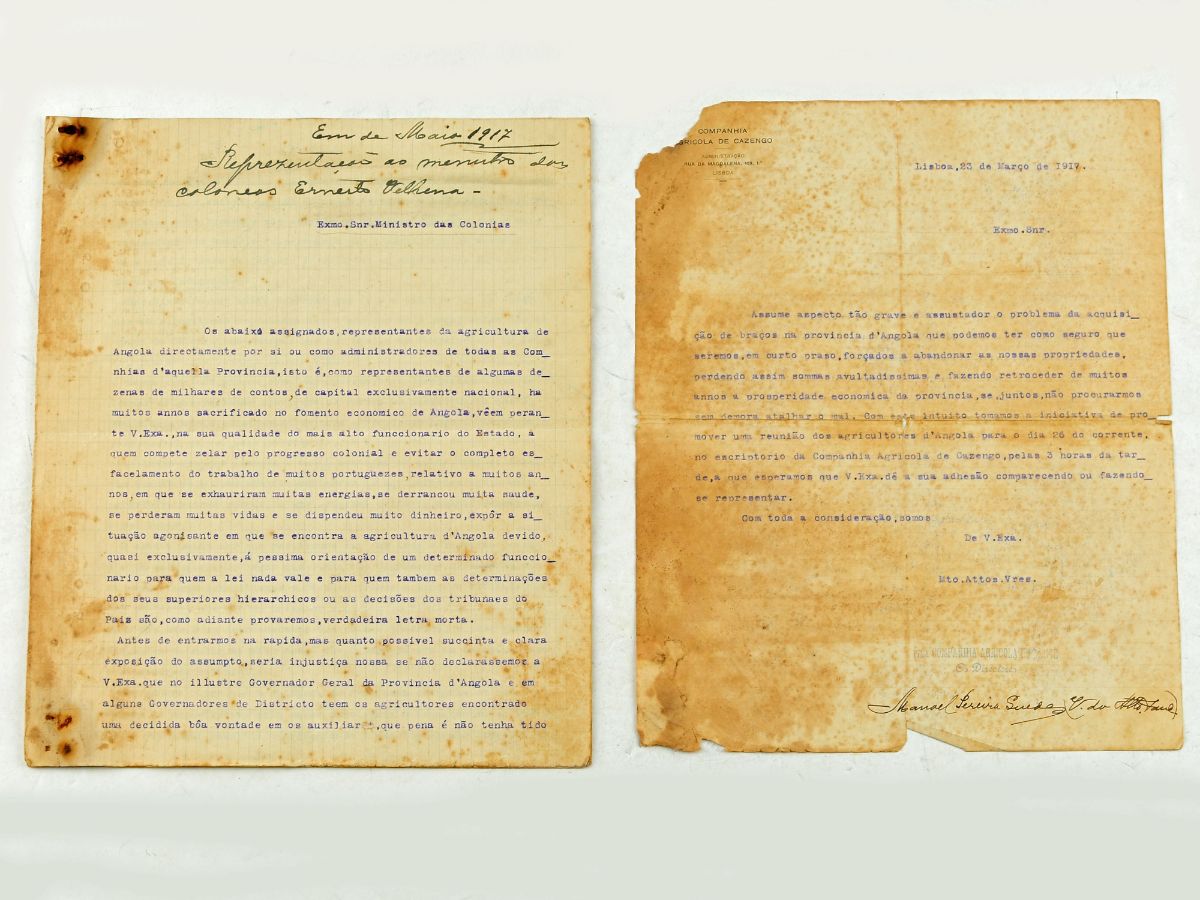 Em de Maio 1917
Reprezentação ao menistro das
coloneas Ernesto Velhena -
Exmo.Snr.Ministro das Colonias
Os abaixo assignados,representantes da agricultura de
Angola directamente por si ou como administradores de todas as Com_
nhias d'aquella Provincia,isto é,como representantes de algumas de_
zenas de milhares de contos,de capital exclusivamente nacional, ha
muitos annos sacrificado no fomento economico de Angola,vêem peran_
te V.Exa.,na sua qualidade do mais alto funccionario do Estado, a
quem compete zelar pelo progresso colonial e evitar o completo es_
facelamento do trabalho de muitos portuguezes,relativo a muitos an_
nos,em que se exhauriram muitas energias,se derrancou muita saude,
se perderam muitas vidas e se dispendeu muito dinheiro,expôr a si_
tuação agonisante em que se encontra a agricultura d'Angola devido,
quasi exclusivamente,á pessima orientação de um determinado funccio_
nario para quem a lei nada vale e para quem tambem as determinações
dos seus superiores hierarchicos ou as decisões dos tribunaes do
Paiz são,como adiante provaremos,verdadeira letra morta.
Antes de entrarmos na rapida,mas quanto possivel succinta e clara
exposição do assumpto,seria injustiça nossa se não declarassemos a
V.Exa.que no illustre Governador Geral da Provincia d'Angola e em
alguns Governadores de Districto teem os agricultores encontrado
uma decidida bôa vontade em os auxiliar ,que pena é não tenha tido
COMPANHIA
AGRICOLA DE CAZENGO
ADMINISTRAÇÃO
RUA DA MAGDALENA, 1º
LISBOA
Lisboa,23 de Março de 1917.
Exmo.Snr.
Assume aspecto tão grave e assustador o problema da acquisi_
ção de braços na provincia d'Angola que podemos ter como seguro que
seremos,em curto praso,forçados a abandonar as nossas propriedades,
perdendo assim sommas avultadissimas e fazendo retroceder de muitos
annos a prosperidade economica da provincia,se,juntos,não procurarmos
sem demora atalhar o mal. Com este intuito tomamos a iniciativa de pro_
mover uma reunião dos agricultores d'Angola para o dia 26 do corrente,
no escriptorio da Companhia Agricola de Cazengo,pelas 3 horas da tar_
de,a que esperamos que V.Exa.dê a sua adhesão comparecendo ou fazendo_
se representar.
Com toda a consideração,somos
De V.Exa.
Mto.Attos.Vres.
COMPANHIA AGRICOLA
Manoel Pereira